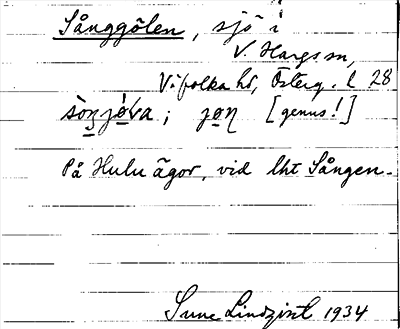 Sånggölen, sjö i
V. Hargs sn,
Vifolka hd, Österg. l 28
sòŋjó̱va; jo̱n [genus!]
På Hulu ägor, vid lht Sången.
Sune Lindqvist 1934